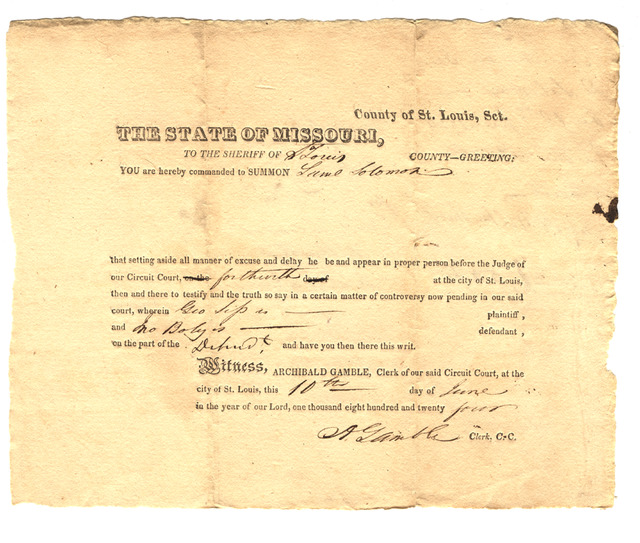 County of St. Louis, Sct.
THE STATE OF MISSOURI,
TO THE SHERIFF OF St Louis COUNTY—GREETING:
YOU are hereby commanded to SUMMON Saml Solomon
that setting aside all manner of excuse and delay he be and appear in proper person before the Judge of
our Circuit Court, on the forthwith day of at the city of St. Louis,
then and there to testify and the truth so say in a certain matter of controversy now pending in our said
court, wherein Geo is plaintiff,
and is defendant,
on the part of the Defendt and have you then there this writ.
Witness, ARCHIBALD GAMBLE, Clerk of our said Circuit Court, at the
city of St. Louis, this 10th day of June
in the year of our Lord, one thousand eight hundred and twenty four
A Gamble Clerk, C. C.